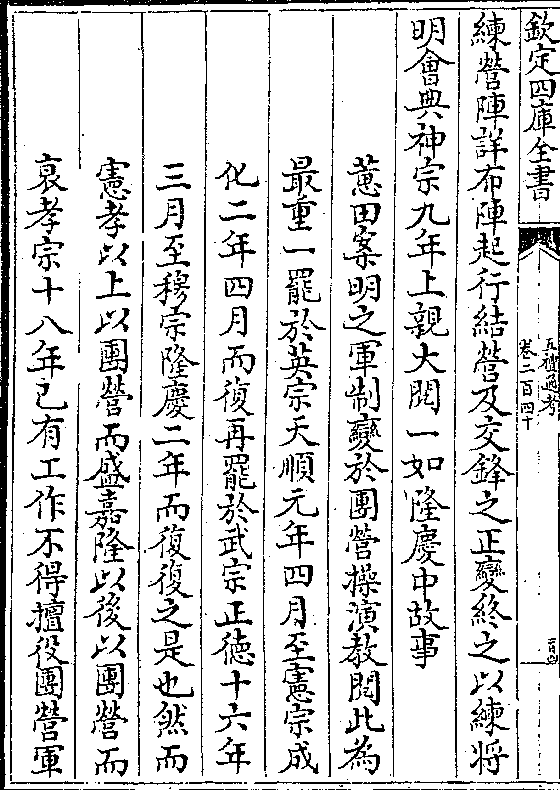 欽定四庫全書
五禮通考
卷二百四十
練營陣詳布陣起行結營及交鋒之正變終之以練將
明會典神宗九年上親大閱一如隆慶中故事
蕙田案明之軍制變於團營操演教閱此為
最重一罷於英宗天順元年四月至憲宗成
化二年四月而復再罷於武宗正德十六年
三月至穆宗隆慶二年而復復之是也然而
憲孝以上以團營而盛嘉隆以後以團營而
衰孝宗十八年已有工作不得擅役團營軍